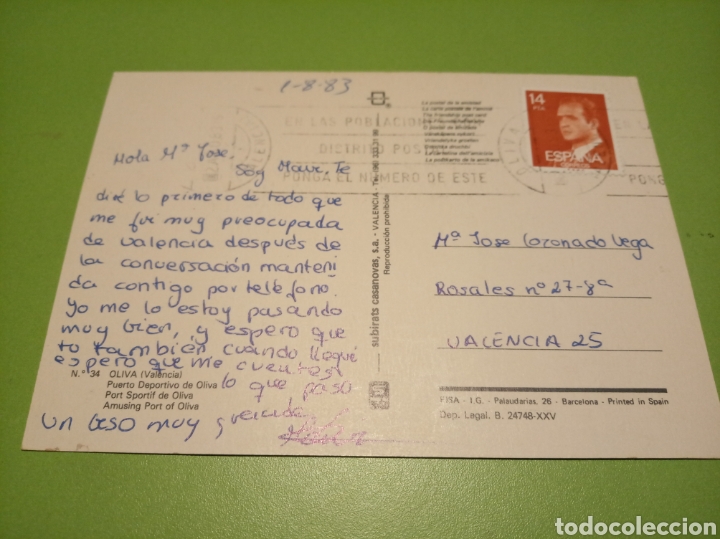 1-8-83
Hola Mª Jose.
Soy Mawi. Te
diré lo primero de todo que
me fui muy preocupada
de valencia después de
la conversación manteni
da contigo por teléfono.
Yo me lo estoy pasando
muy bien, y espero que
tu también cuando llegué
espero que me cuentes
lo que paso
Un beso muy
N.º 34 OLIVA (Valencia)
Puerto Deportivo de Oliva
Port Sportif de Oliva
Amusing Port of Oliva
EN LAS POBLACION
DISTRITO POS
PONGA EL NUMERO DE ESTE
OLIVA
EN LA
PONG
14
PTA
ESPAÑA
subirats casanovas, s.a. - VALENCIA
Reproducción prohibida
Mª Jose Coronado Vega
Rosales nº 27-8ª
VALENCIA 25
FISA - I.G. - Palaudarias, 26 - Barcelona - Printed in Spain
Dep. Legal. B. 24748-XXV
todocoleccion